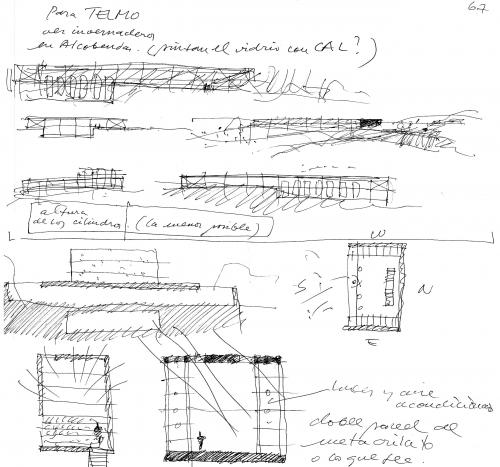 para TELMO
67
ver invernaderos
en Alcobendas. (pintan el vidrio con CAL?)
altura
de los cilindros. (la menor posible)
N
E
luces y aire
acondicionado
doble pared de
metacrilato
o lo que sea.